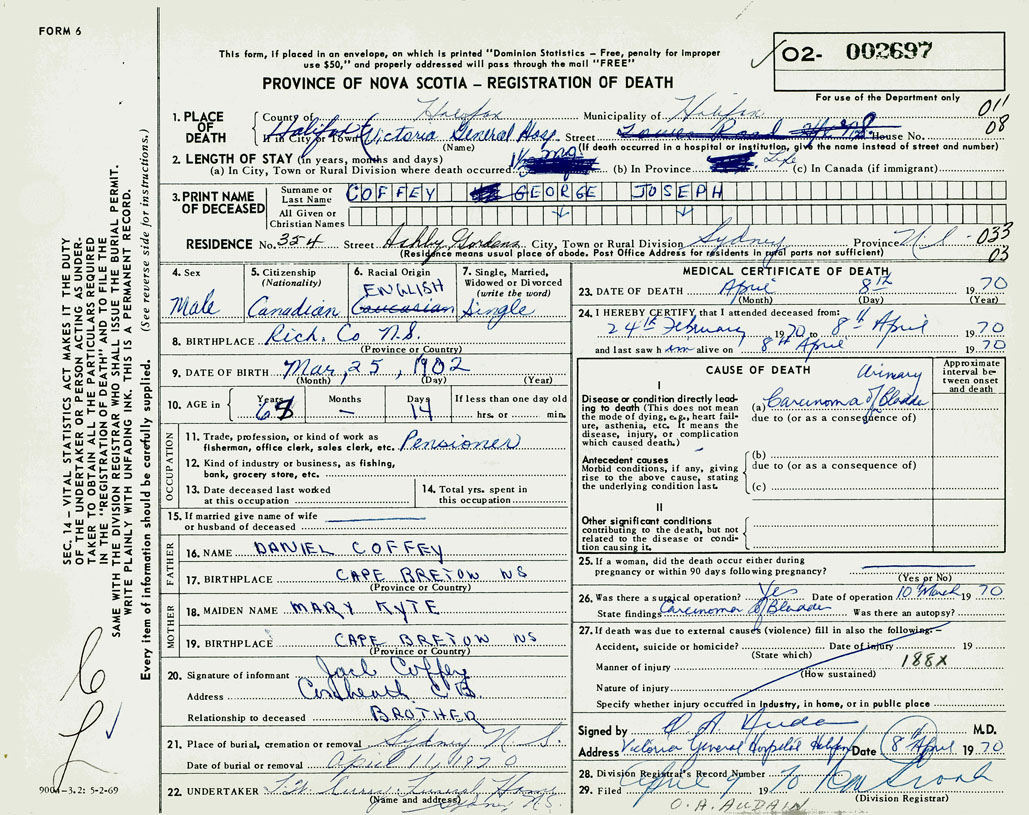 FORM 6
This form, if placed in an envelope, on which is printed "Dominion Statistics – Free, penalty for improper
use $50," and properly addressed will pass through the mail "FREE"
O2- 002697
PROVINCE OF NOVA SCOTIA – REGISTRATION OF DEATH
For use of the Department only
011
08
1. PLACE OF DEATH
County of Halifax Municipality of Halifax
If in City or Town Halifax Victoria General Hosp. Street House No.
(Name) (If death occurred in a hospital or institution, give the name instead of street and number)
2. LENGTH OF STAY (in years, months and days)
(a) In City, Town or Rural Division where death occurred (b) In Province Life (c) In Canada (if immigrant)
3. PRINT NAME OF DECEASED
Surname or Last Name COFFEY GEORGE JOSEPH
All Given or Christian Names
RESIDENCE No. 354 Street Ashby Gardens City, Town or Rural Division Sydney Province N S - 033
(Residence means usual place of abode. Post Office Address for residents in rural parts not sufficient) 03
4. Sex Male
5. Citizenship (Nationality) Canadian
6. Racial Origin ENGLISH Caucasian
7. Single, Married, Widowed or Divorced (write the word) Single
8. BIRTHPLACE Rich. Co N.S.
(Province or Country)
9. DATE OF BIRTH Mar, 25, 1902
(Month) (Day) (Year)
10. AGE in Years 68 Months – Days 14 If less than one day old hrs. or min.
OCCUPATION
11. Trade, profession, or kind of work as fisherman, office clerk, sales clerk, etc. Pensioner
12. Kind of industry or business, as fishing, bank, grocery store, etc.
13. Date deceased last worked at this occupation
14. Total yrs. spent in this occupation
15. If married give name of wife or husband of deceased
FATHER
16. NAME DANIEL COFFEY
17. BIRTHPLACE CAPE BRETON NS
(Province or Country)
MOTHER
18. MAIDEN NAME MARY KYTE
19. BIRTHPLACE CAPE BRETON NS
(Province or Country)
20. Signature of informant Jack Coffey
Address Coxheath C B.
Relationship to deceased BROTHER
21. Place of burial, cremation or removal Sydney N.S.
Date of burial or removal April 11, 1970
22. UNDERTAKER Funeral Home
(Name and address) Sydney N.S.
MEDICAL CERTIFICATE OF DEATH
23. DATE OF DEATH April 8th 1970
(Month) (Day) (Year)
24. I HEREBY CERTIFY, that I attended deceased from:
24th February 1970 to 8th April 1970
and last saw him alive on 8th April 1970
CAUSE OF DEATH
Approximate interval between onset and death
I
Disease or condition directly leading to death (This does not mean the mode of dying, e.g., heart failure, asthenia, etc. It means the disease, injury, or complication which caused death.)
(a) Carcinoma of Urinary Bladder
due to (or as a consequence of)
Antecedent causes
Morbid conditions, if any, giving rise to the above cause, stating the underlying condition last.
(b)
due to (or as a consequence of)
(c)
II
Other significant conditions contributing to the death, but not related to the disease or condition causing it.
25. If a woman, did the death occur either during pregnancy or within 90 days following pregnancy?
(Yes or No)
26. Was there a surgical operation? Yes Date of operation 10 March 1970
State findings Carcinoma of Bladder Was there an autopsy?
27. If death was due to external causes (violence) fill in also the following:–
Accident, suicide or homicide? Date of injury 19
(State which)
Manner of injury 188X
(How sustained)
Nature of injury
Specify whether injury occurred in Industry, in home, or in public place
Signed by M.D.
Address Victoria General Hospital Halifax Date 8th April 1970
28. Division Registrar's Record Number
29. Filed April 9 1970
O. A. AUDAIN (Division Registrar)
SEC. 14 – VITAL STATISTICS ACT MAKES IT THE DUTY
OF THE UNDERTAKER OR PERSON ACTING AS UNDER-
TAKER TO OBTAIN ALL THE PARTICULARS REQUIRED
IN THE "REGISTRATION OF DEATH" AND TO FILE THE
SAME WITH THE DIVISION REGISTRAR WHO SHALL ISSUE THE BURIAL PERMIT.
WRITE PLAINLY WITH UNFADING INK. THIS IS A PERMANENT RECORD.
Every item of information should be carefully supplied. (See reverse side for instructions.)
9004-3.2: 5-2-69